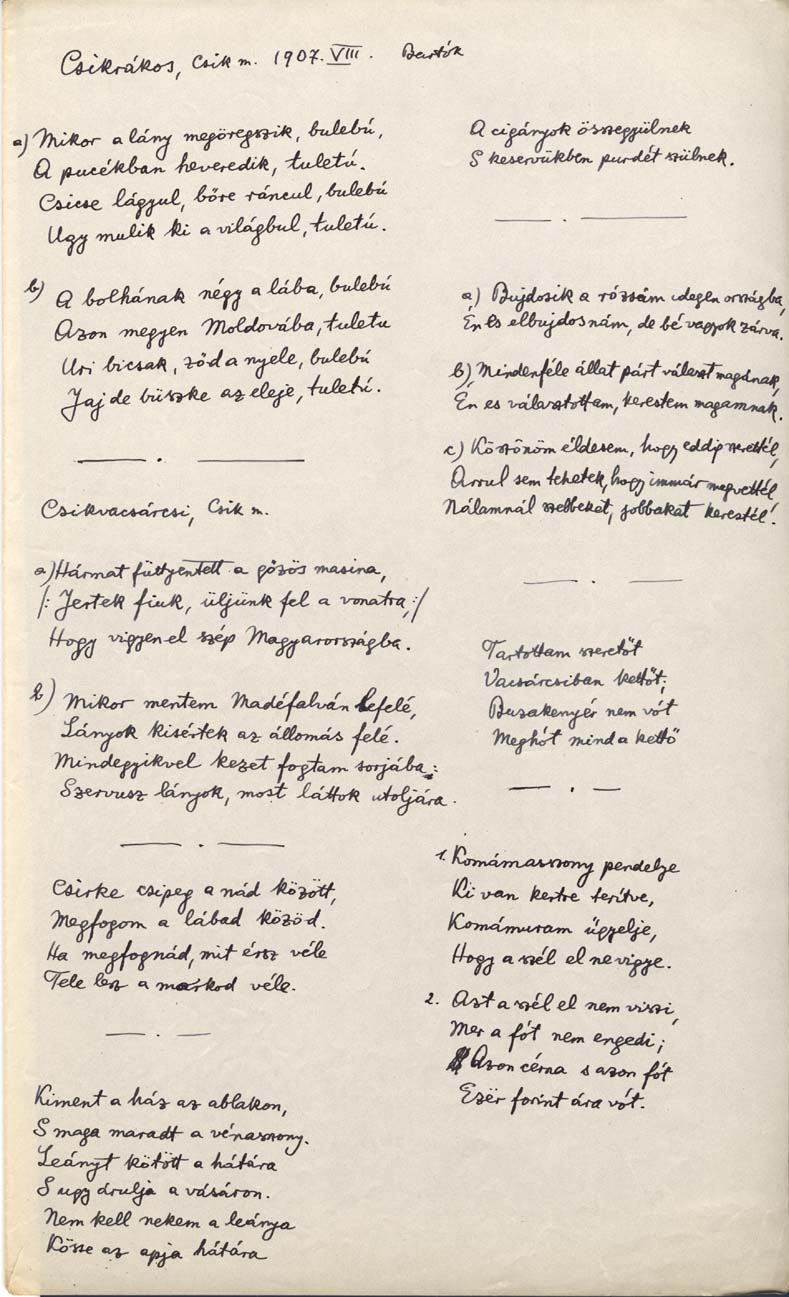 Csikrákos, Csik m. 1907. VIII. Bartók
a) Mikor a lány megöregszik, bulebú,
A pucékban heveredik, tuletú.
Csicse lágyul, bőre ráncul, bulebú
Ugy mulik ki a világbul, tuletú.
b) A bolhának négy a lába, bulebú
Azon megyen Moldovába, tuletu
Uri bicsak, ződ a nyele, bulebú
Jaj de büszke az eleje, tuletú.
Csikvacsárcsi, Csik m.
a) Hármat füttyentett a gőzös masina,
/: Jertek fiuk, üljünk fel a vonatra, :/
Hogy vigyen el szép Magyarországba.
b) Mikor mentem Madéfalván befelé,
Lányok kisértek az állomás felé.
Mindegyikvel kezet fogtam sorjába:
Szervusz lányok, most láttok utoljára.
Csirke csipeg a nád között,
Megfogom a lábad közöd.
Ha megfognád, mit érsz véle
Tele lesz a markod véle.
Kiment a ház az ablakon,
S maga maradt a vénasszony.
Leányt kötött a hátára
S ugy árulja a vásáron.
Nem kell nekem a leánya
Kösse az apja hátára
A cigányok összegyülnek
S keservükben purdét szülnek.
a) Bujdosik a rózsám idegen országba,
Én es elbujdosnám, de bé vagyok zárva.
b) Mindenféle állat párt választ magának,
Én es választottam, kerestem magamnak.
c) Köszönöm éldesem, hogy eddig szerettél,
Arrul sem tehetek, hogy immár megvettél
Nálamnál szebbeket, jobbakat kerestél.
Tartottam szeretőt
Vacsárcsiban kettőt;
Buzakenyér nem vót
Meghót mind a kettő
1. Komámasszony pendelye
Ki van kertre terítve,
Komámuram ügyelje,
Hogy a szél el ne vigye.
2. Azt a szél el nem viszi,
Mer a fót nem engedi;
Azon cérna s azon fót
Ezër forint ára vót.